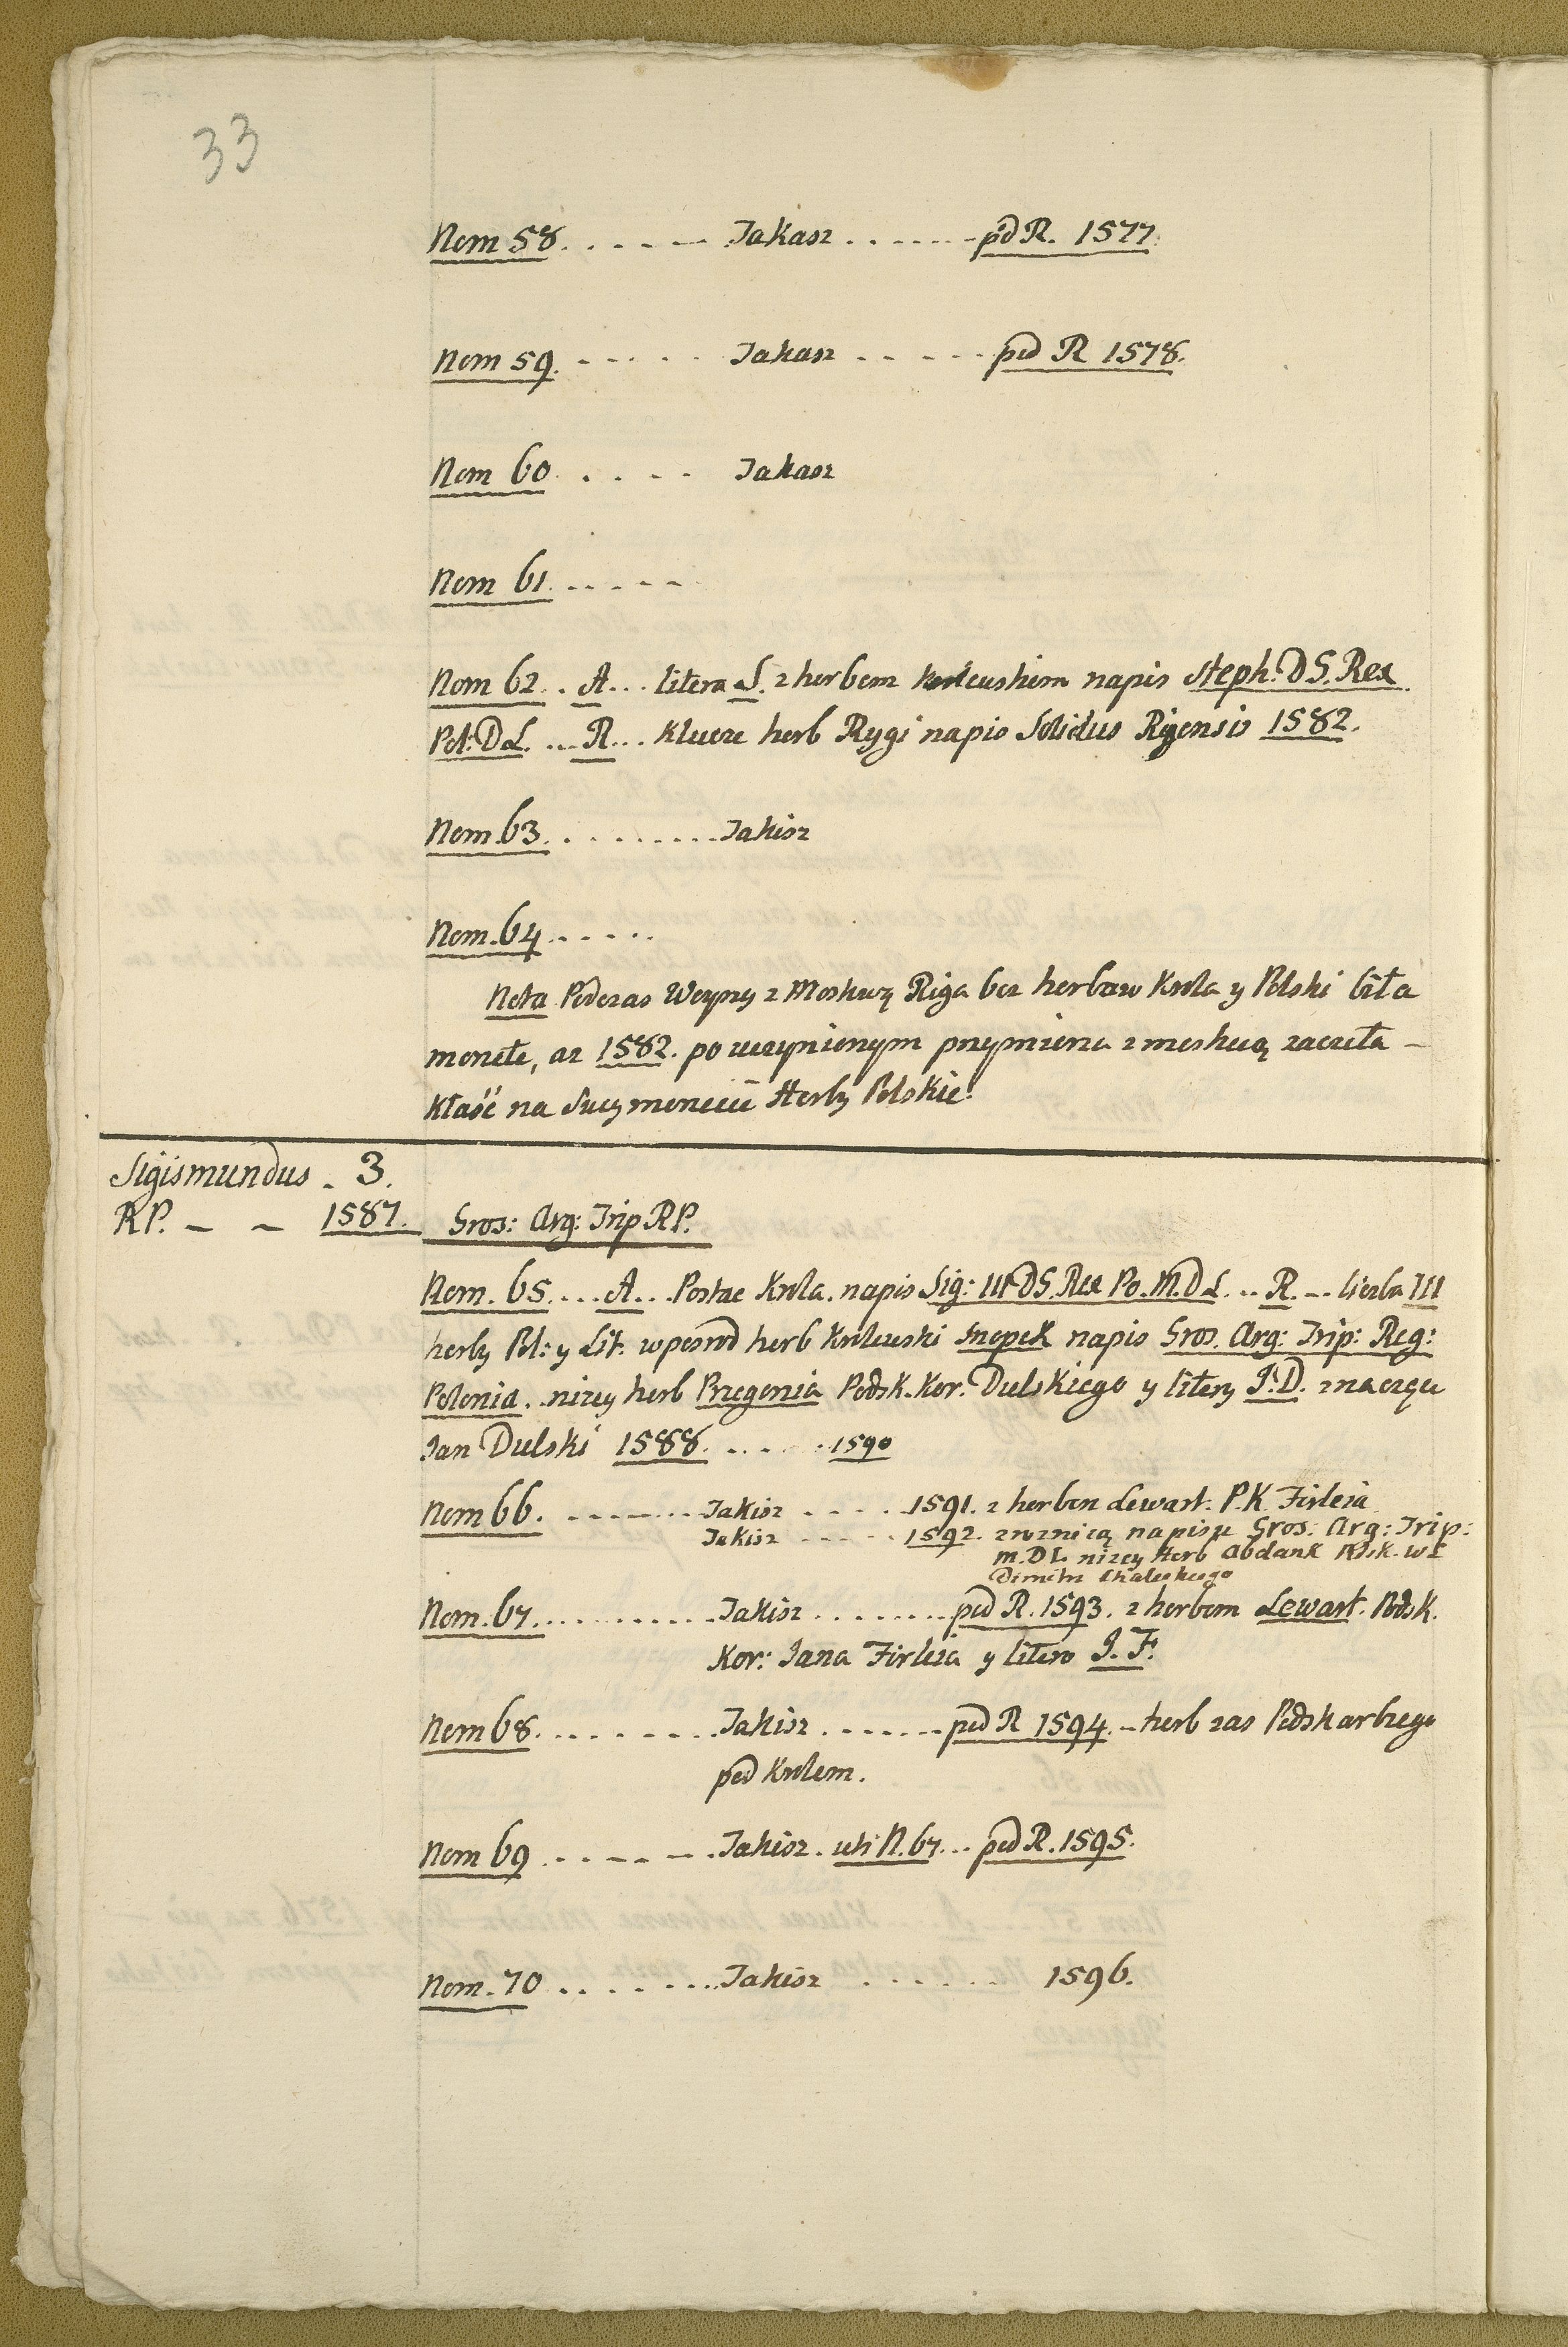 33
Nom 58. . . . . . Jakasz . . . . . . pod R. 1577.
Nom 59. . . . . . Jakasz . . . . . pod R 1578.
Nom 60 . . . . Jakasz
Nom 61. . . . . .
Nom 62. . A... litera S. z herbem napis Steph. D S. Rex
Pol. D L. ... R... Klucze herb Rygi napis Solidus Rigensis 1582.
Nom 63. . . . . . . . . Jakisz
Nom. 64. . . . .
Nota Podczas Woyny z Moskwą Riga bez herbow Krola y Polski biła
monete, az 1582. po uczynionym przymierza z moskwą zaczeła –
kłaść na Swey monecie Herby Polskie.
Sigismundus . 3.
RP. – – 1587. Gros: Arg: Trip RP.
Nom. 65. . . . A. . . Postac Krola. napis Sig: III D S. Rex Po. M. D L. .. R. .. liczba III
herby Pol: y Lit. w posrod herb Krolewski Snopek napis Gros. Arg: Trip: Reg:
Polonia. nizey herb Przegonia Podsk. Kor. Dulskiego y litery J. D. znaczące
Jan Dulski 1588. . . . . . 1590
Nom 66. . . . . . . . Jakisz . . . . . 1591. z herbem Lewart. P. K. Firleia
Jakisz . . . . . . 1592. z roznicą napisu Gros: Arg: Trip:
M. D L. nizey Herb Abdank Pdsk. W L
Dimitr Chaleckiego
Nom. 67. . . . . . . . . . Jakisz . . . . . . . . pod R. 1593. z herbem Lewart. Podsk.
Kor: Jana Firleia y litero J. F.
Nom 68. . . . . . . . Jakisz . . . . . . . pod R 1594. – herb zas Podskarbiego
pod Krolem.
Nom 69 . . . . . . . Jakisz. uti N. 67... pod R. 1595.
Nom. 70 . . . . . . . Jakisz . . . . . . 1596.